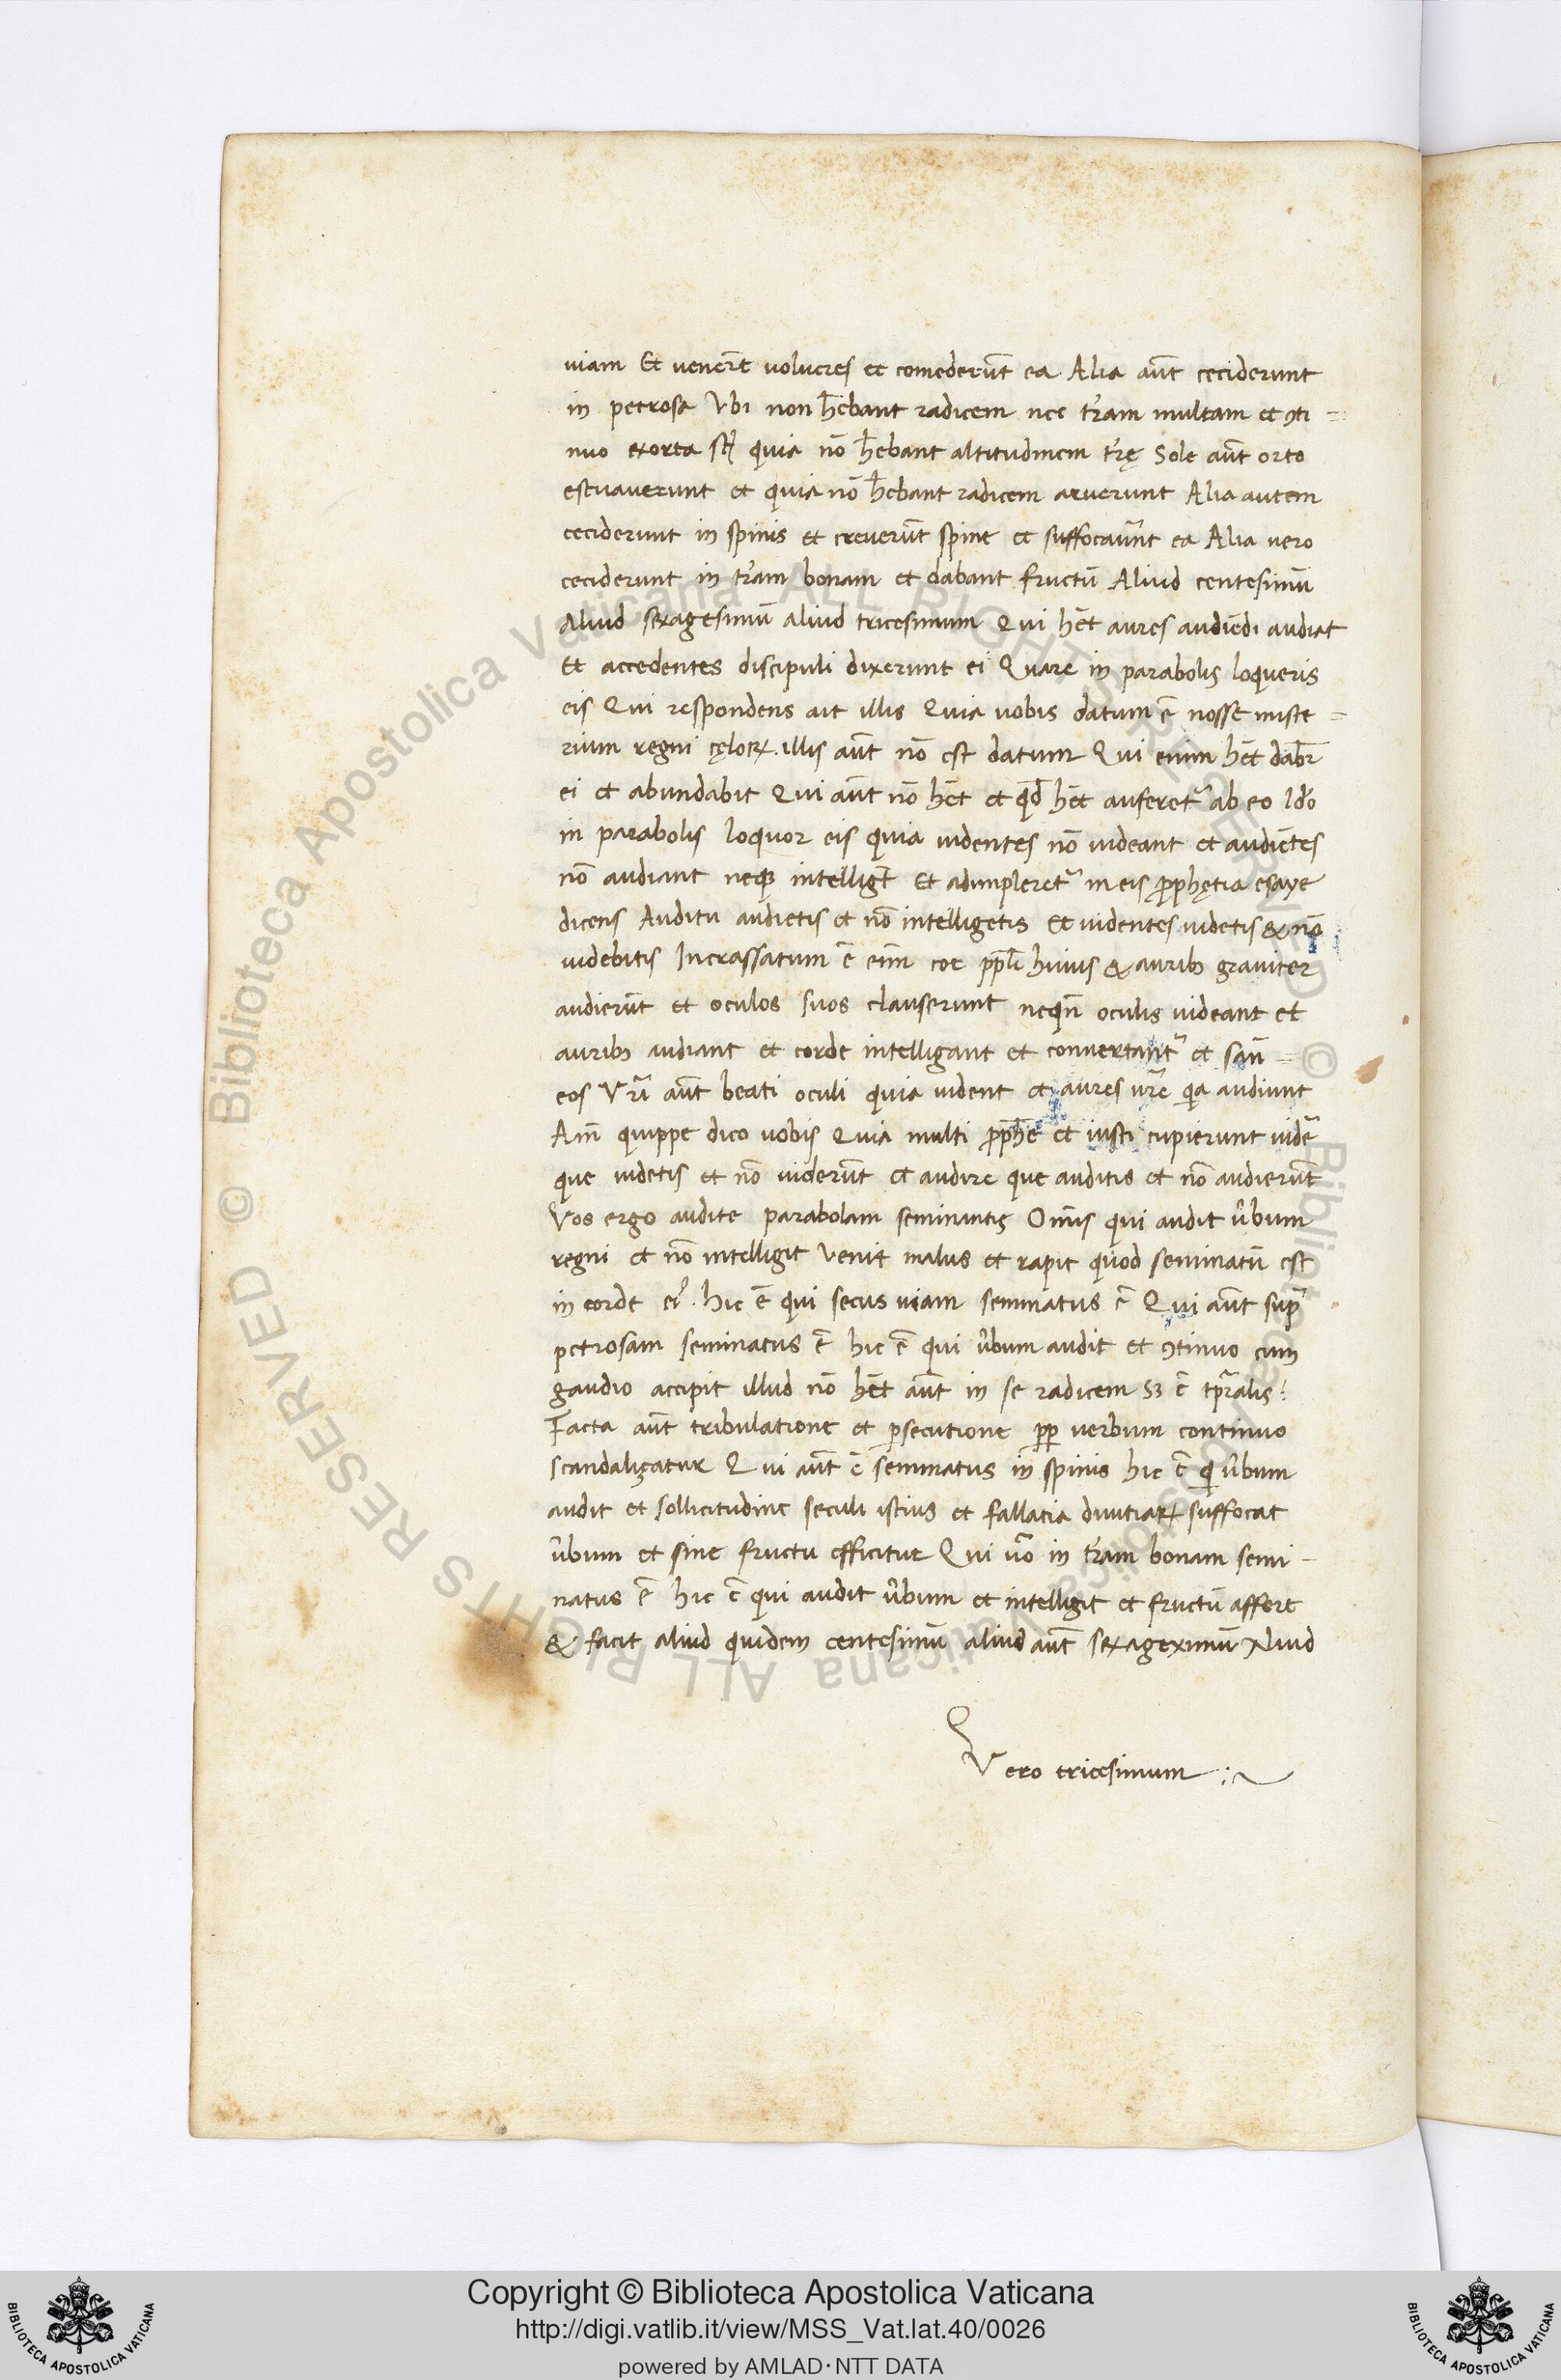 uiam Et venert̄ volucres et comederūt ea Alia aūt ceciderunt
in petrosa Vbi non hēbant radicem nec tr̄am multam et ꝯti=
nuo exorta st̄ quia nō hēbant altitudinem tr̄ę Sole aūt orto
estuauerunt et quia nō hēbant radicem aruerunt Alia autem
ceciderunt in spinis et creuerūt spine et suffocaūnt ea Alia uero
ceciderunt in tr̄am bonam et dabant fructū Aliud centesimū
Aliud sexagesimū aliud tricesimum Qui hēt aures audiēdi audiat
Et accedentes discipuli dixerunt ei Quare in parabolis loqueris
eis Qui respondens ait illis Quia uobis datum ē nosse miste=
rium regni cęloꝝ. illis aūt nō est datum Qui enim hēt dabr̄
ei et abundabit Qui aūt nō hēt et qd̄ hēt auferet᷑ ab eo Idō
in parabolis loquor eis quia uidentes nō uideant et audiētes
nō audiant neqꝫ intelligt̄ Et adimpleret᷑ in eis ꝓphętia esaye
dicens Auditu audietis et nō intelligetis Et uidentes uidetis & nō
uidebitis Incrassatum ē eīm cor ppl̄i huius & auribꝫ grauiter
audierūt et oculos suos clauserunt neqn̄ oculis uideant et
auribꝫ audiant et corde intelligant et conuertant᷑ et san̄=
eos Vr̄i aūt beati oculi quia uident et aures ur̄e qia audiunt
Am̄ quippe dico uobis Quia multi ꝓphē et iusti cupierunt uidē
que uidetis et nō uiderūt et audire que auditis et nō audierūt
Vos ergo audite parabolam seminantis Omīs qui audit ūbum
regni et nō intelligit venit malus et rapit quod seminatū est
in corde eiꝰ. hic ē qui secus uiam seminatus ē Qui aūt supr̄
petrosam seminatus ē hic ē qui ūbum audit et ꝯtinuo cum
gaudio accipit illud nō hēt aūt in se radicem sꝫ ē tp̄ralis:
Facta aūt tribulatione et ꝑsecutione ꝓp verbum continuo
scandaliçatur Qui aūt ē seminatus in spinis hic ē qi ūbum
audit et sollicitudine seculi istius et fallatia diuitiaꝝ suffocat
ūbum et sine fructu efficitur Qui uō in tr̄am bonam semi-
natus ē hic ē qui audit ūbum et intelligit et fructū affert
& facit aliud quidem centesimū aliud aūt sexageximū Aliud
Vero tricesimum :~
Copyright © Biblioteca Apostolica Vaticana
http://digi.vatlib.it/view/MSS_Vat.lat.40/0026
powered by AMLAD·NTT DATA
BIBLIOTECA APOSTOLICA VATICANA
BIBLIOTECA APOSTOLICA VATICANA
© Biblioteca Apostolica Vaticana ALL RIGHTS RESERVED © Biblioteca Apostolica Vaticana ALL RIGHTS RESERVED